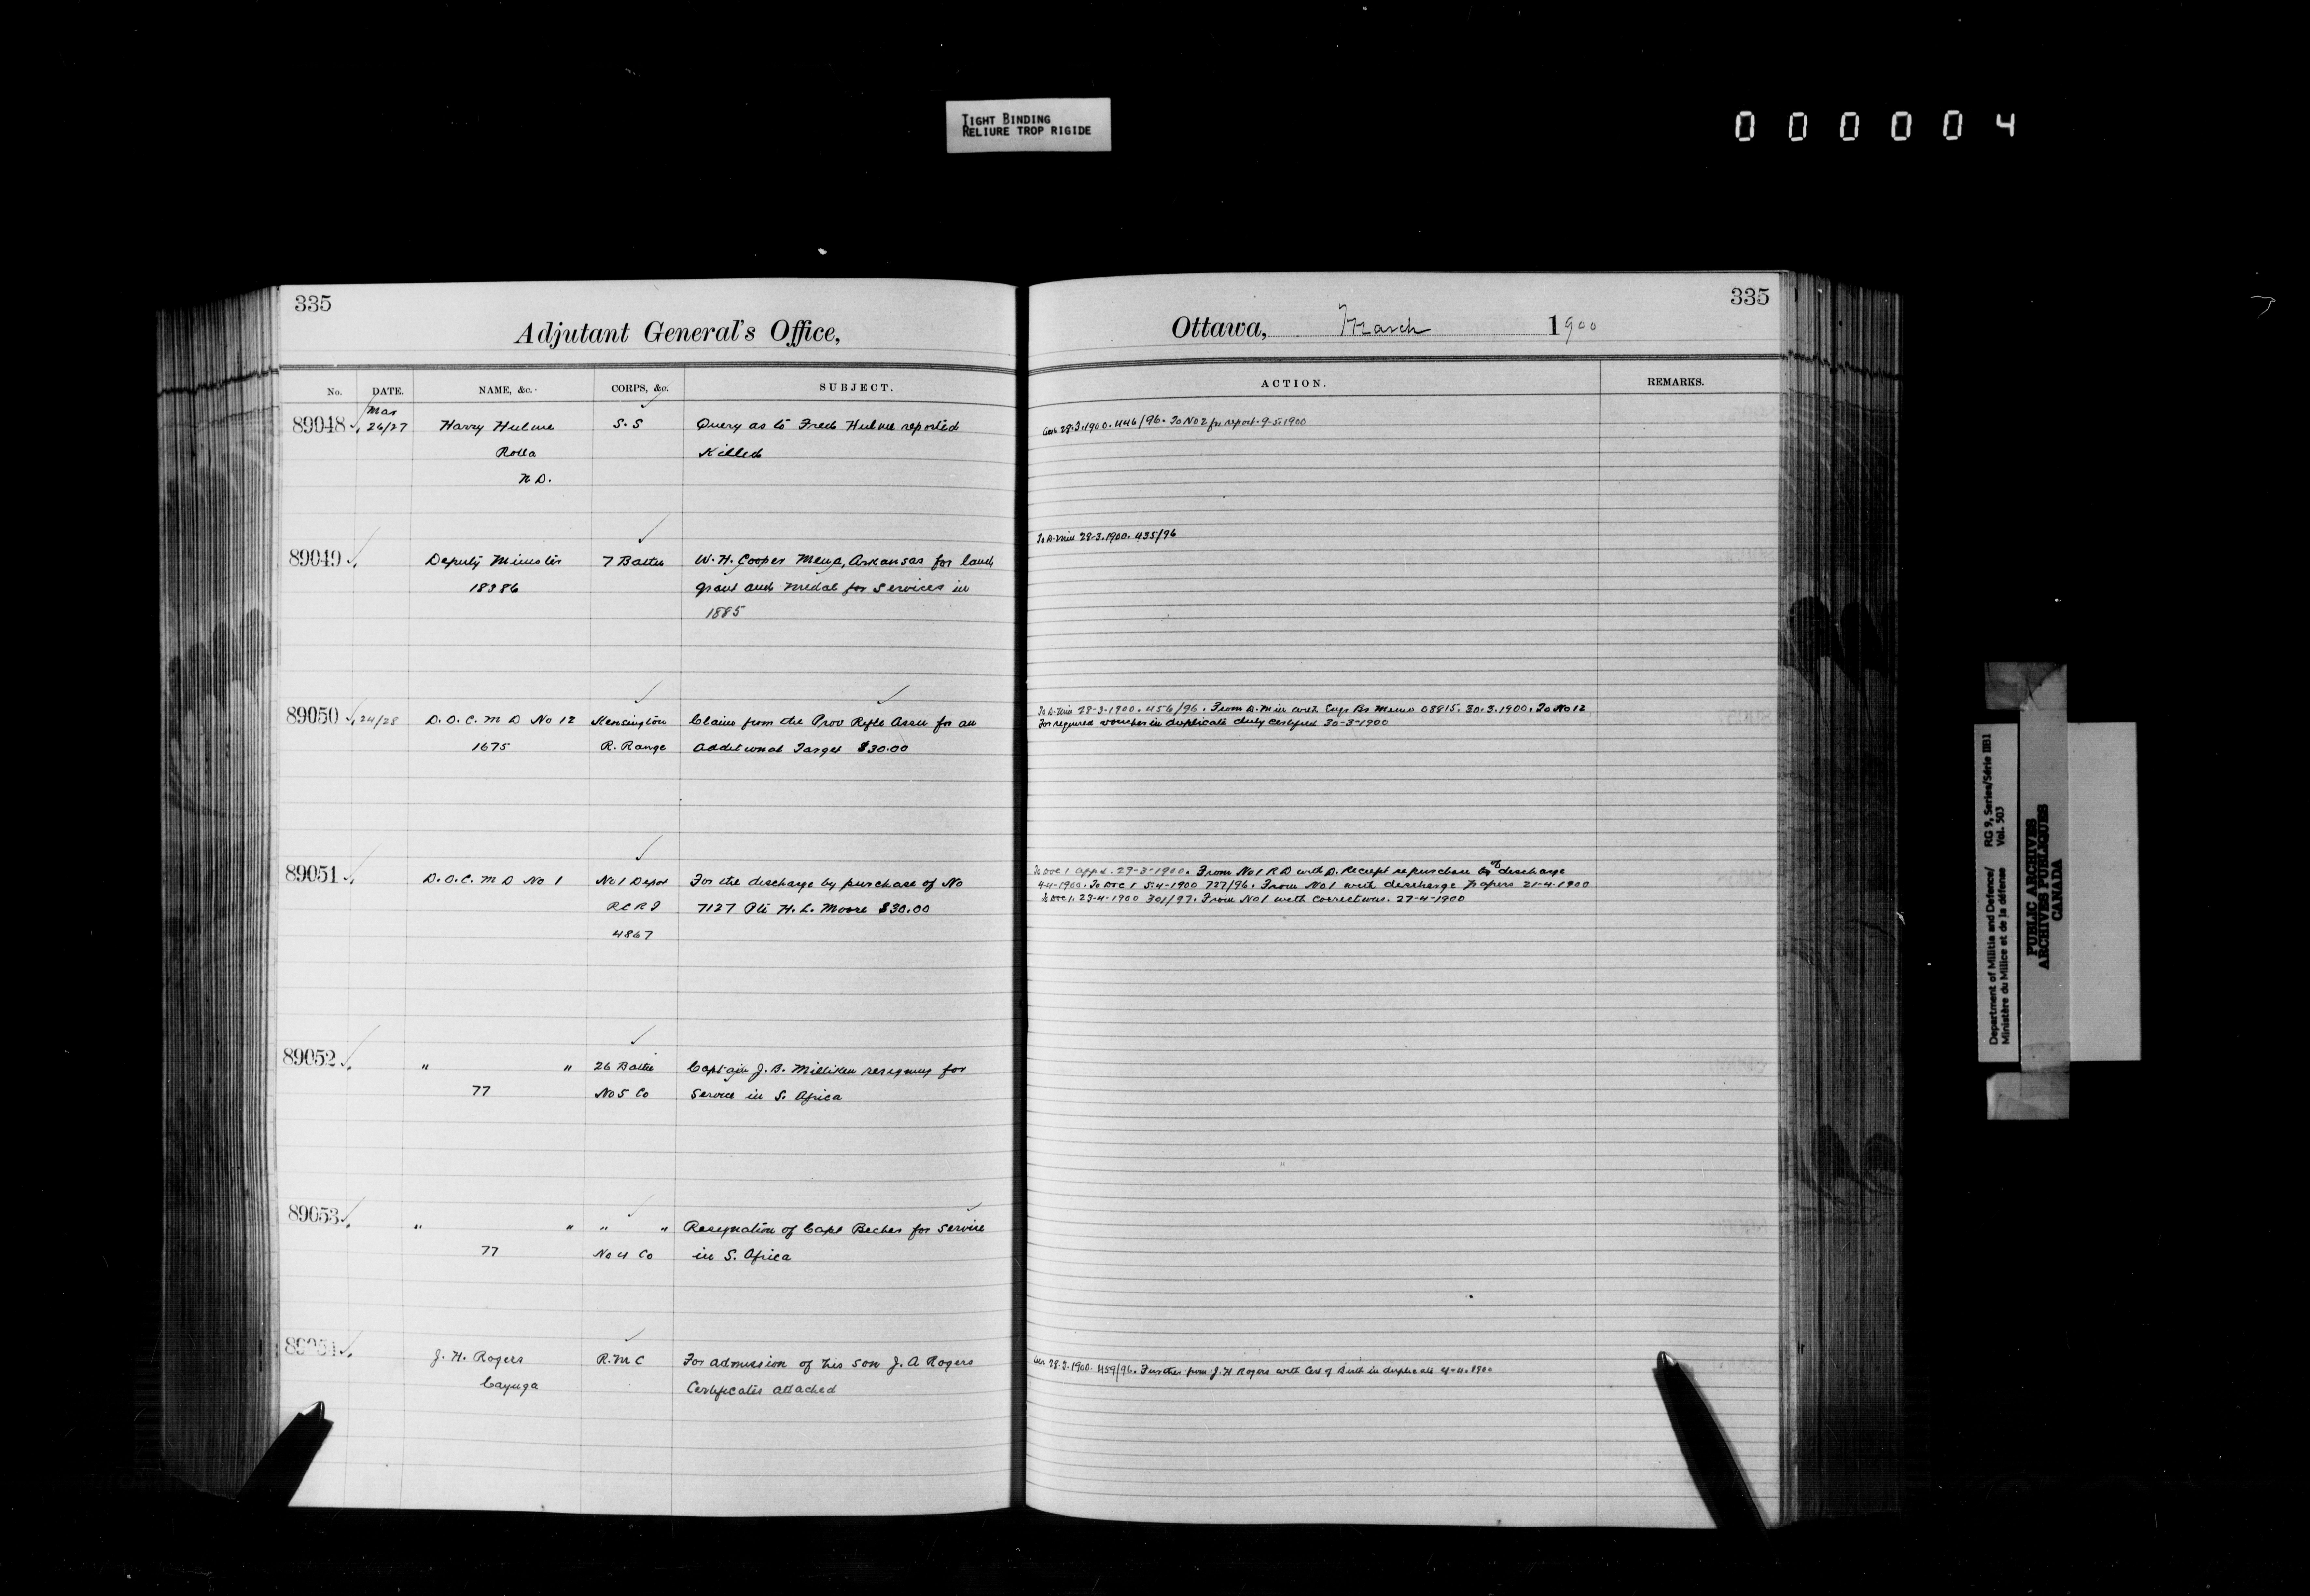 TIGHT BINDING
RELIURE TROP RIGIDE
000004
335
Adjutant General's Office,
No. DATE. NAME, &c. CORPS, &c. SUBJECT.
Mar
89048 26/27 Harry Hulme S.S Query as to Fred Hulme reported
Rolla Killed
N D.
89049 Deputy Minister 7 Battn W. H. Cooper Mena, Arkansas for land
18386 grant and medal for services in
1885
89050 24/28 D. O. C. M D No 12 Kensington Claim from the Prov Rifle Assn for an
1675 R. Range additional Target $30.00
89051 D. O. C. M D No 1 No 1 Depot For the discharge by purchase of No
R C R I 7127 Pte H. L. Moore $30.00
4867
89052 " " 26 Battn Captain J. B. Milliken resigning for
77 No 5 Co Service in S. Africa
89053 " " " " Resignation of Capt Becher for service
77 No 4 Co in S. Africa
89054 J. H. Rogers R. M C For admission of his son J. A Rogers
Cayuga Certificates attached
335
Ottawa, March 1900
ACTION. REMARKS.
28.3.1900. 446/96. To No 2 for report. 9-5-1900
To D. Min 28-3.1900. 435/96
To D. Min 28-3-1900. 456/96. From D. M in with Engr Br Memo 08815. 30.3.1900. To No 12
For required voucher in duplicate duly certified 30-3-1900
To DOC 1 appd. 29-3-1900. From No 1 R D with D. Receipt re purchase of discharge
4-4-1900. To DOC 1 5-4-1900 727/96. From No 1 with discharge papers 21-4-1900
To DOC 1. 23-4-1900 301/97. From No 1 with corrections. 27-4-1900
28.3.1900. 459/96. Further from J. H Rogers with Cert of Birth in duplicate 4-4.1900
Department of Militia and Defence/ RG 9, Series/Série IIB1
Ministère du Milice et de la défense Vol. 503
PUBLIC ARCHIVES
ARCHIVES PUBLIQUES
CANADA